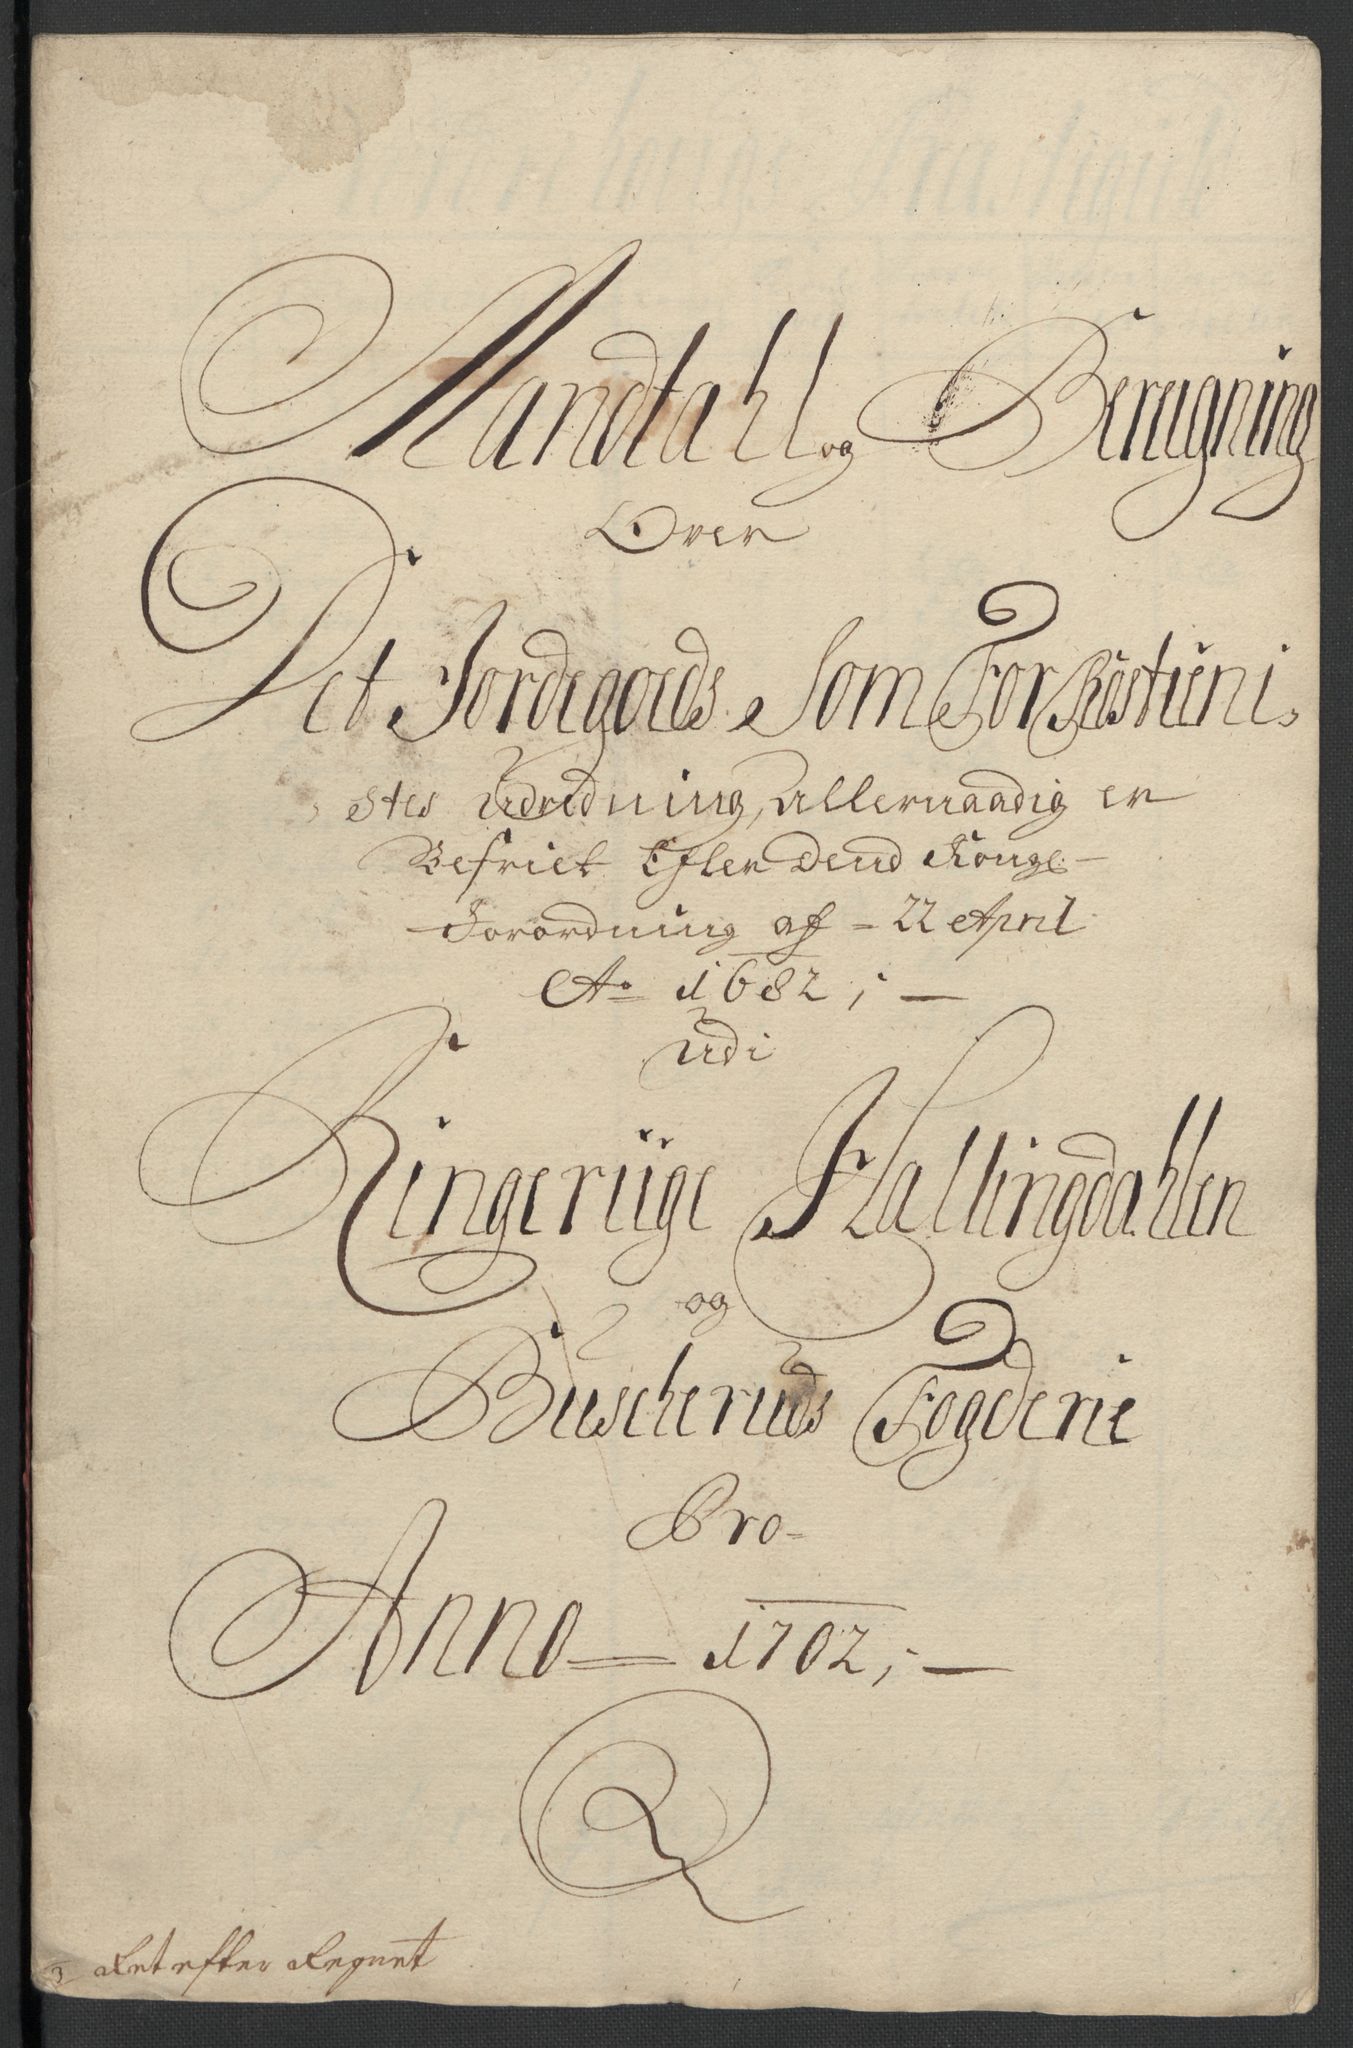 Mandtahl og Bereigning
Over
Det Jordegoeds Som For Rostieni
stes Udredning, Allernaadig er
Befriet Efter Dend Konge
Forordning af 22 April
Ao 1682;
Udi
Ringeriige Hallingdahlen
og
Buscheruds Fogderie
Pro
Anno 1702;
Ret efter Regnet